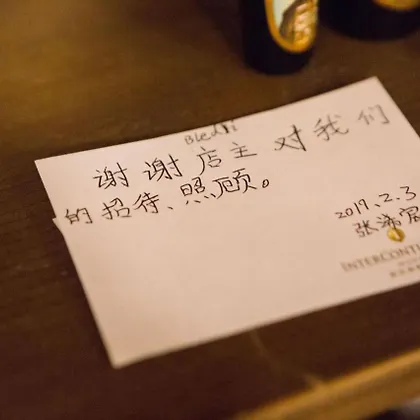 Bledii
谢谢店主对我们
的招待、照顾。
2019.2.3
INTERCONTI